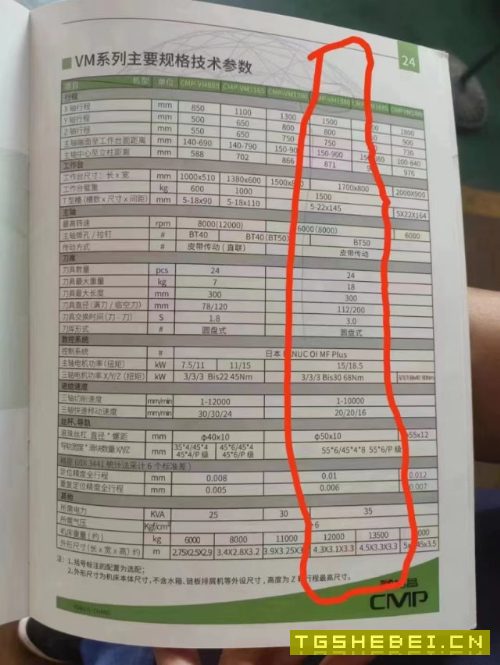 VM系列主要规格技术参数
24
项目 机型 单位 CMP-VM855 CMP-VM1165
行程
X轴行程 mm 850 1100 1300 1500
Y轴行程 mm 500 600 800
Z轴行程 mm 550 650 750 750
主轴端面至工作台面距离 mm 140-690 140-790 150-900
主轴中心至立柱距离 mm 588 702 866 871 976
工作台
工作台尺寸：长x宽 mm 1000x510 1380x600 1700x800
工作台载重 kg 600 1000 1500
T型槽（槽数x尺寸x间距） mm 5-18x90 5-18x110 5-22x145 5X22X164
主轴
最高转速 rpm 8000(12000) 6000(8000) 6000
主轴锥孔/拉钉 # BT40 BT40 BT50
传动方式 # 皮带传动（直联） 皮带传动
刀库
刀具数量 pcs 24 24
刀具最大重量 kg 7 18
刀具最大长度 mm 300 300
刀具直径（满刀/临空刀） mm 78/120 112/200
刀具交换时间（刀-刀） S 1.8 3.0
刀库形式 # 圆盘式 圆盘式
数控系统
控制系统 # 日本 NUC OI MF Plus
主轴电机功率（扭矩） kW 7.5/11 11/15 15/18.5
三轴电机功率X/Y/Z（扭矩） kW 3/3/3 Bis22 45Nm 3/3/3 Bis30 68Nm
进给速度
三轴切削速度 mm/min 1-12000 1-10000
三轴快速移动速度 mm/min 30/30/24 20/20/16
丝杆、导轨
滚珠丝杠 直径*螺距 mm φ40x10 φ50x10 φ55x12
mm 35*4/45*4 45*4/P级 45*6/45*4 45*6/P级 55*6/45*4*8 55*6/P级
定位精度全行程 mm 0.008 0.01 0.012
重复定位精度全行程 mm 0.005 0.006 0.007
其他
所需电力 KVA 25 30 35
所需气压 Kgf/cm² 6
机床重量（约） kg 6000 8000 11000 12000 13500
外形尺寸（长x宽x高）约 m 2.75X2.5X2.9 3.4X2.8X3.2 4.3X3.1X3.3 4.5X3.3X3.3
注：1.括号标注的配置为选配；
2.外形尺寸为机床本体尺寸，不含水箱、链板排屑机等外设尺寸，高度为Z轴行程最高尺寸。
CMP
TGSHEBEI.CN